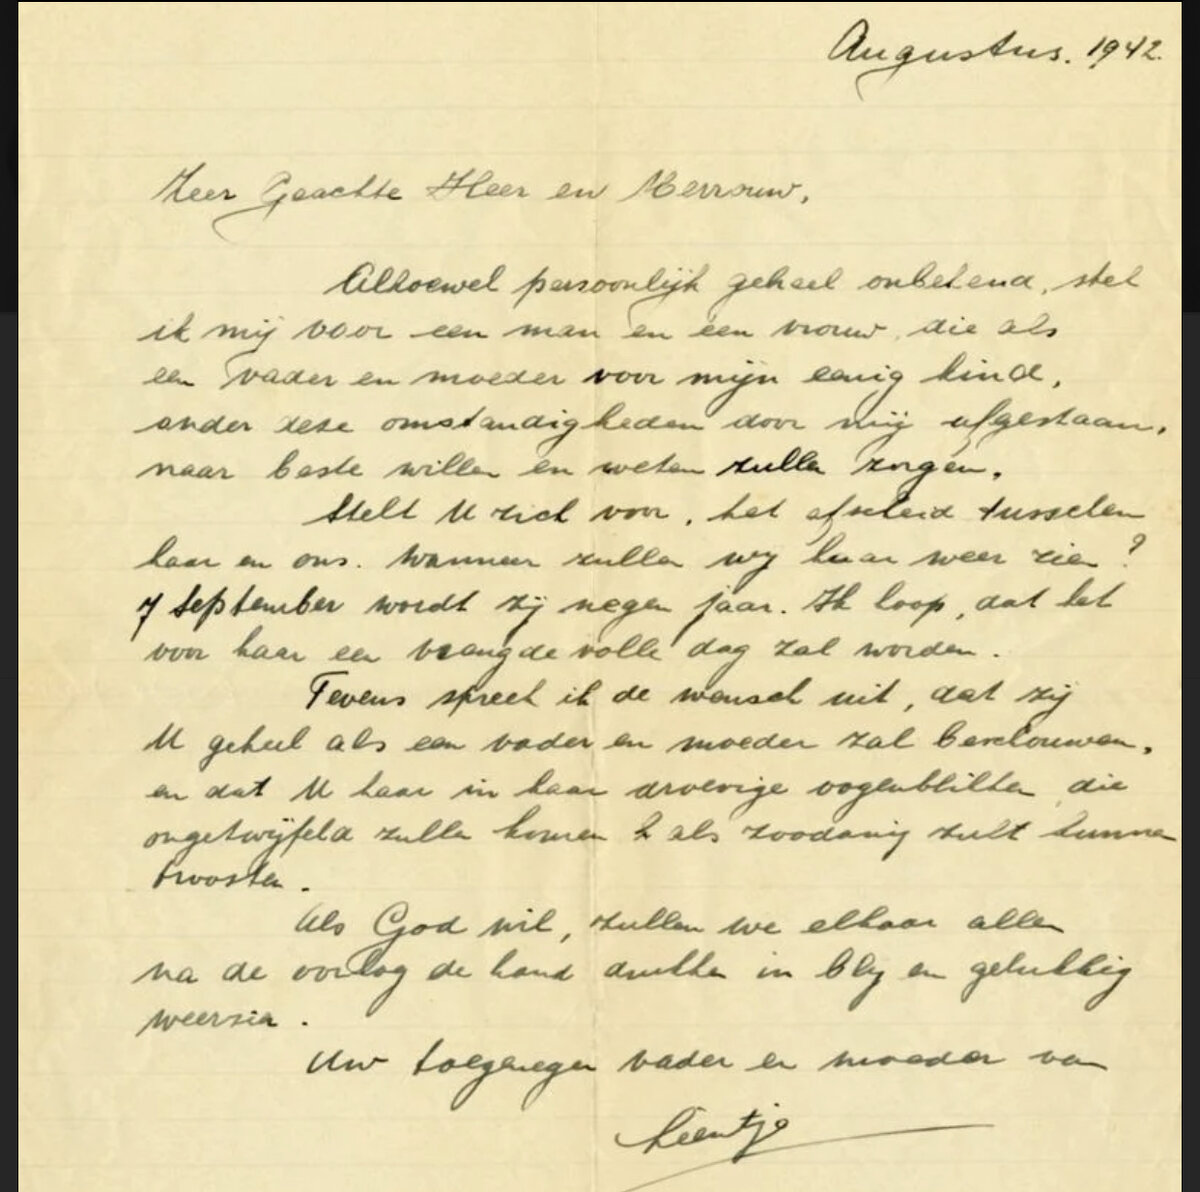 Augustus. 1942.
Zeer Geachte Heer en Mevrouw,
Alhoewel persoonlijk geheel onbekend, stel
ik mij voor een man en een vrouw, die als
een vader en moeder voor mijn eenig kind,
onder deze omstandigheden door mij afgestaan,
naar beste willen en weten zullen zorgen.
Stelt U zich voor, het afscheid tusschen
haar en ons. Wanneer zullen wy haar weer zien?
7 September wordt zij negen jaar. Ik hoop, dat het
voor haar een vreugde volle dag zal worden.
Tevens spreek ik de wensch uit, dat zij
U geheel als een vader en moeder zal beschouwen,
en dat U haar in haar droevige oogenblikken, die
ongetwijfeld zullen komen als zoodanig zult kunnen
troosten.
Als God wil, zullen we elkaar allen
na de oorlog de hand drukken in bly en gelukkig
weerzien.
Uw toegenegen vader en moeder van
Leentje